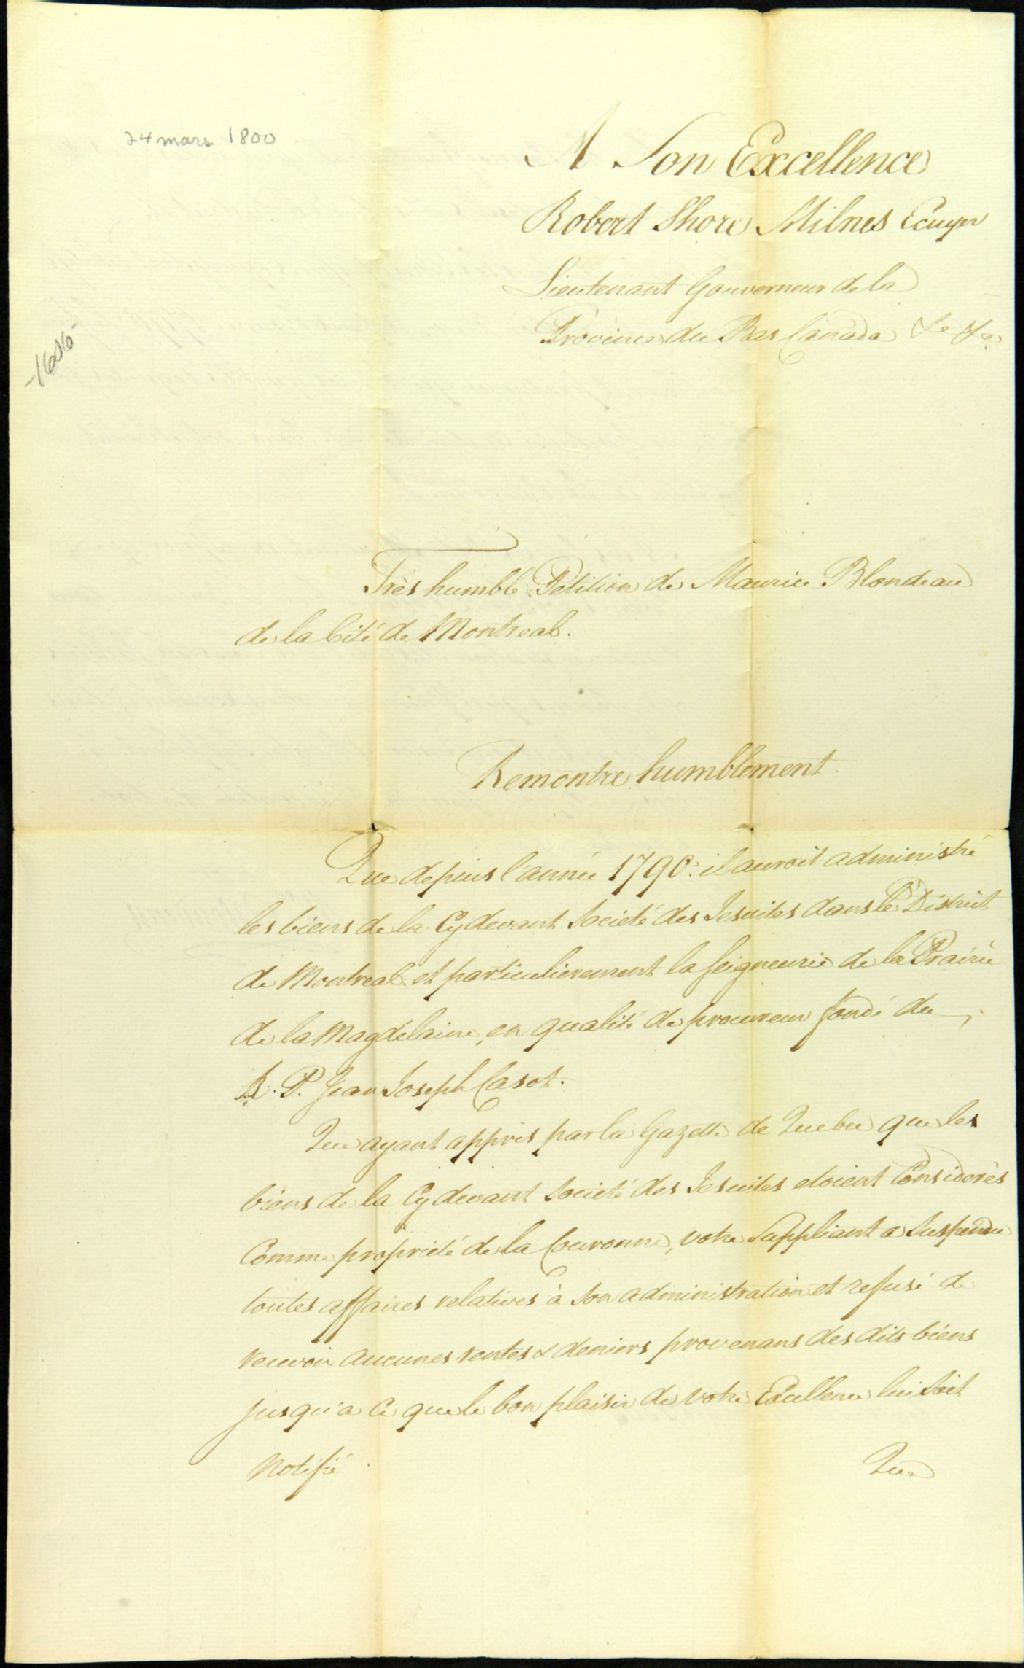 24 mars 1800
A Son Excellence
Robert Shore Milnes Ecuyer
Lieutenant Gouverneur de la
Province du Bas Canada &c &c.
-1686-
Très humble Pétition de Maurice Blondeau
de la Cité de Montreal.
Remontre humblement
Que depuis l'année 1790: il auroit administré
les biens de la Cydevant Societé des Jesuites dans le District
de Montreal et particulierement la Seigneurie de la Prairie
de la Magdelaine, en qualité de procureur fondé du
R. P. Jean Joseph Casot.
Que ayant appris par la Gazette de Quebec que les
biens de la Cydevant Societé des Jesuites etoient Considerés
Comme propriété de la Couronne, votre Suppliant a Suspendu
toutes affaires relatives à son administration et refusé de
recevoir aucunes rentes & deniers provenans des dits biens
jusqu'a ce que le bon plaisir de votre Excellence lui soit
Notifié.
Que